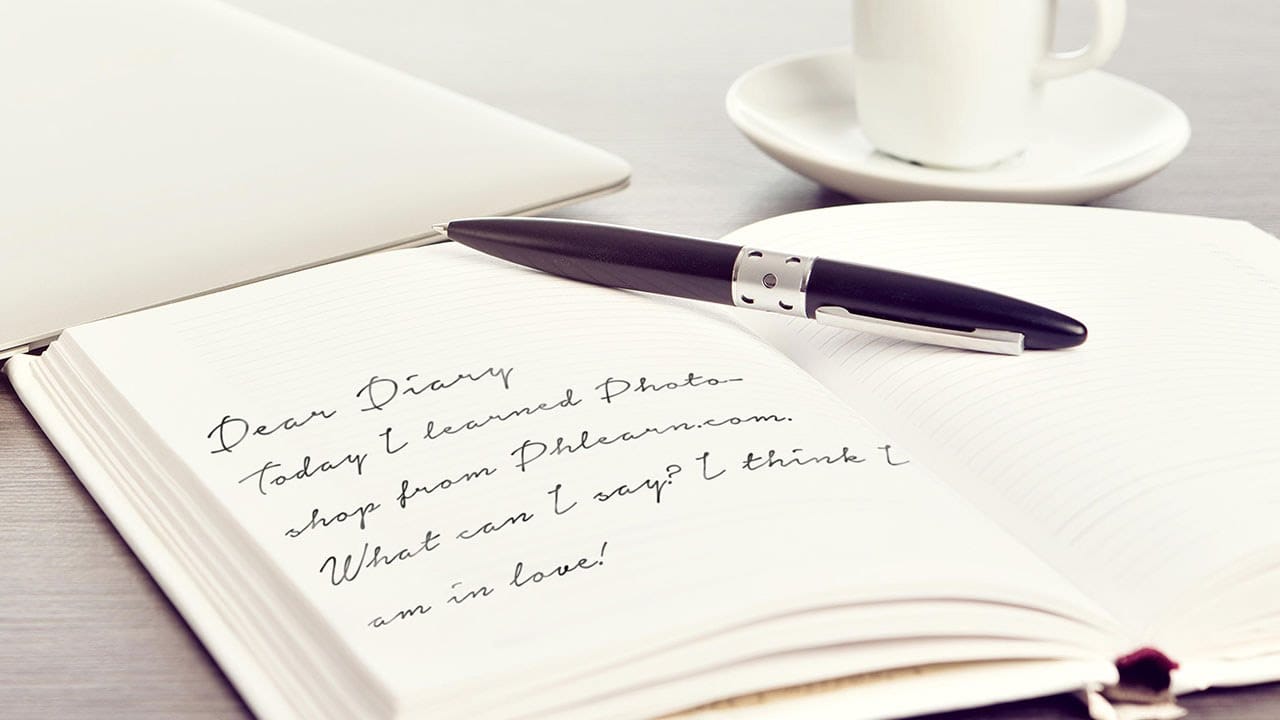 Dear Diary
Today I learned Photo-
shop from Phlearn.com.
What can I say? I think I
am in love!